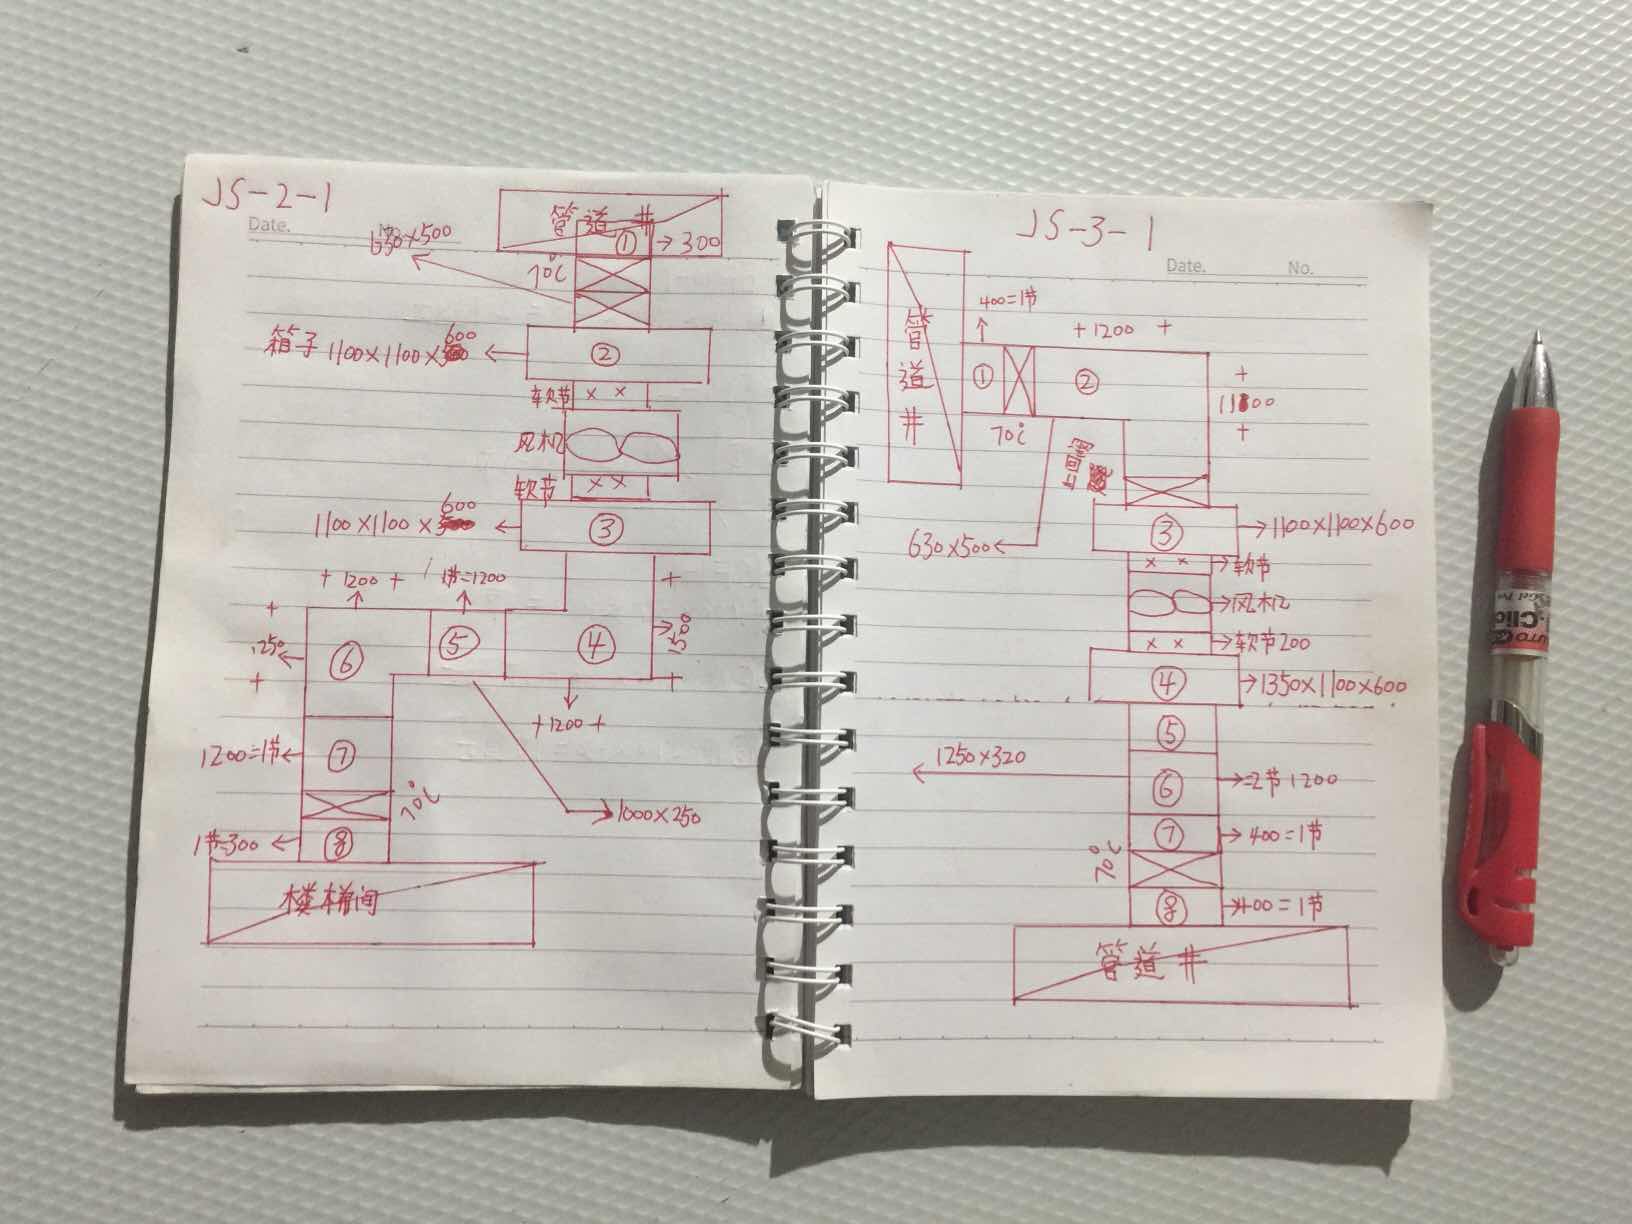 JS-2-1
Date.
管道井
630×500
① →300
70℃
箱子 1100×1100×600
②
软节 × ×
风机
软节 × ×
600
1100×1100×
③
+ 1200 +
1节=1200
+
1250
+
⑥
⑤
④
+
1500
+
+1200+
1200=1节
⑦
70℃
1000×250
1节=300
⑧
楼梯间
JS-3-1
Date. No.
管道井
400=1节
+1200 +
①
②
+
1100
+
70℃
上回阀
630×500
③
1100×1100×600
× × 软节
风机
× × 软节200
④
1350×1100×600
⑤
1250×320
⑥
=2节1200
⑦
400=1节
70℃
⑧
400=1节
管道井
Click